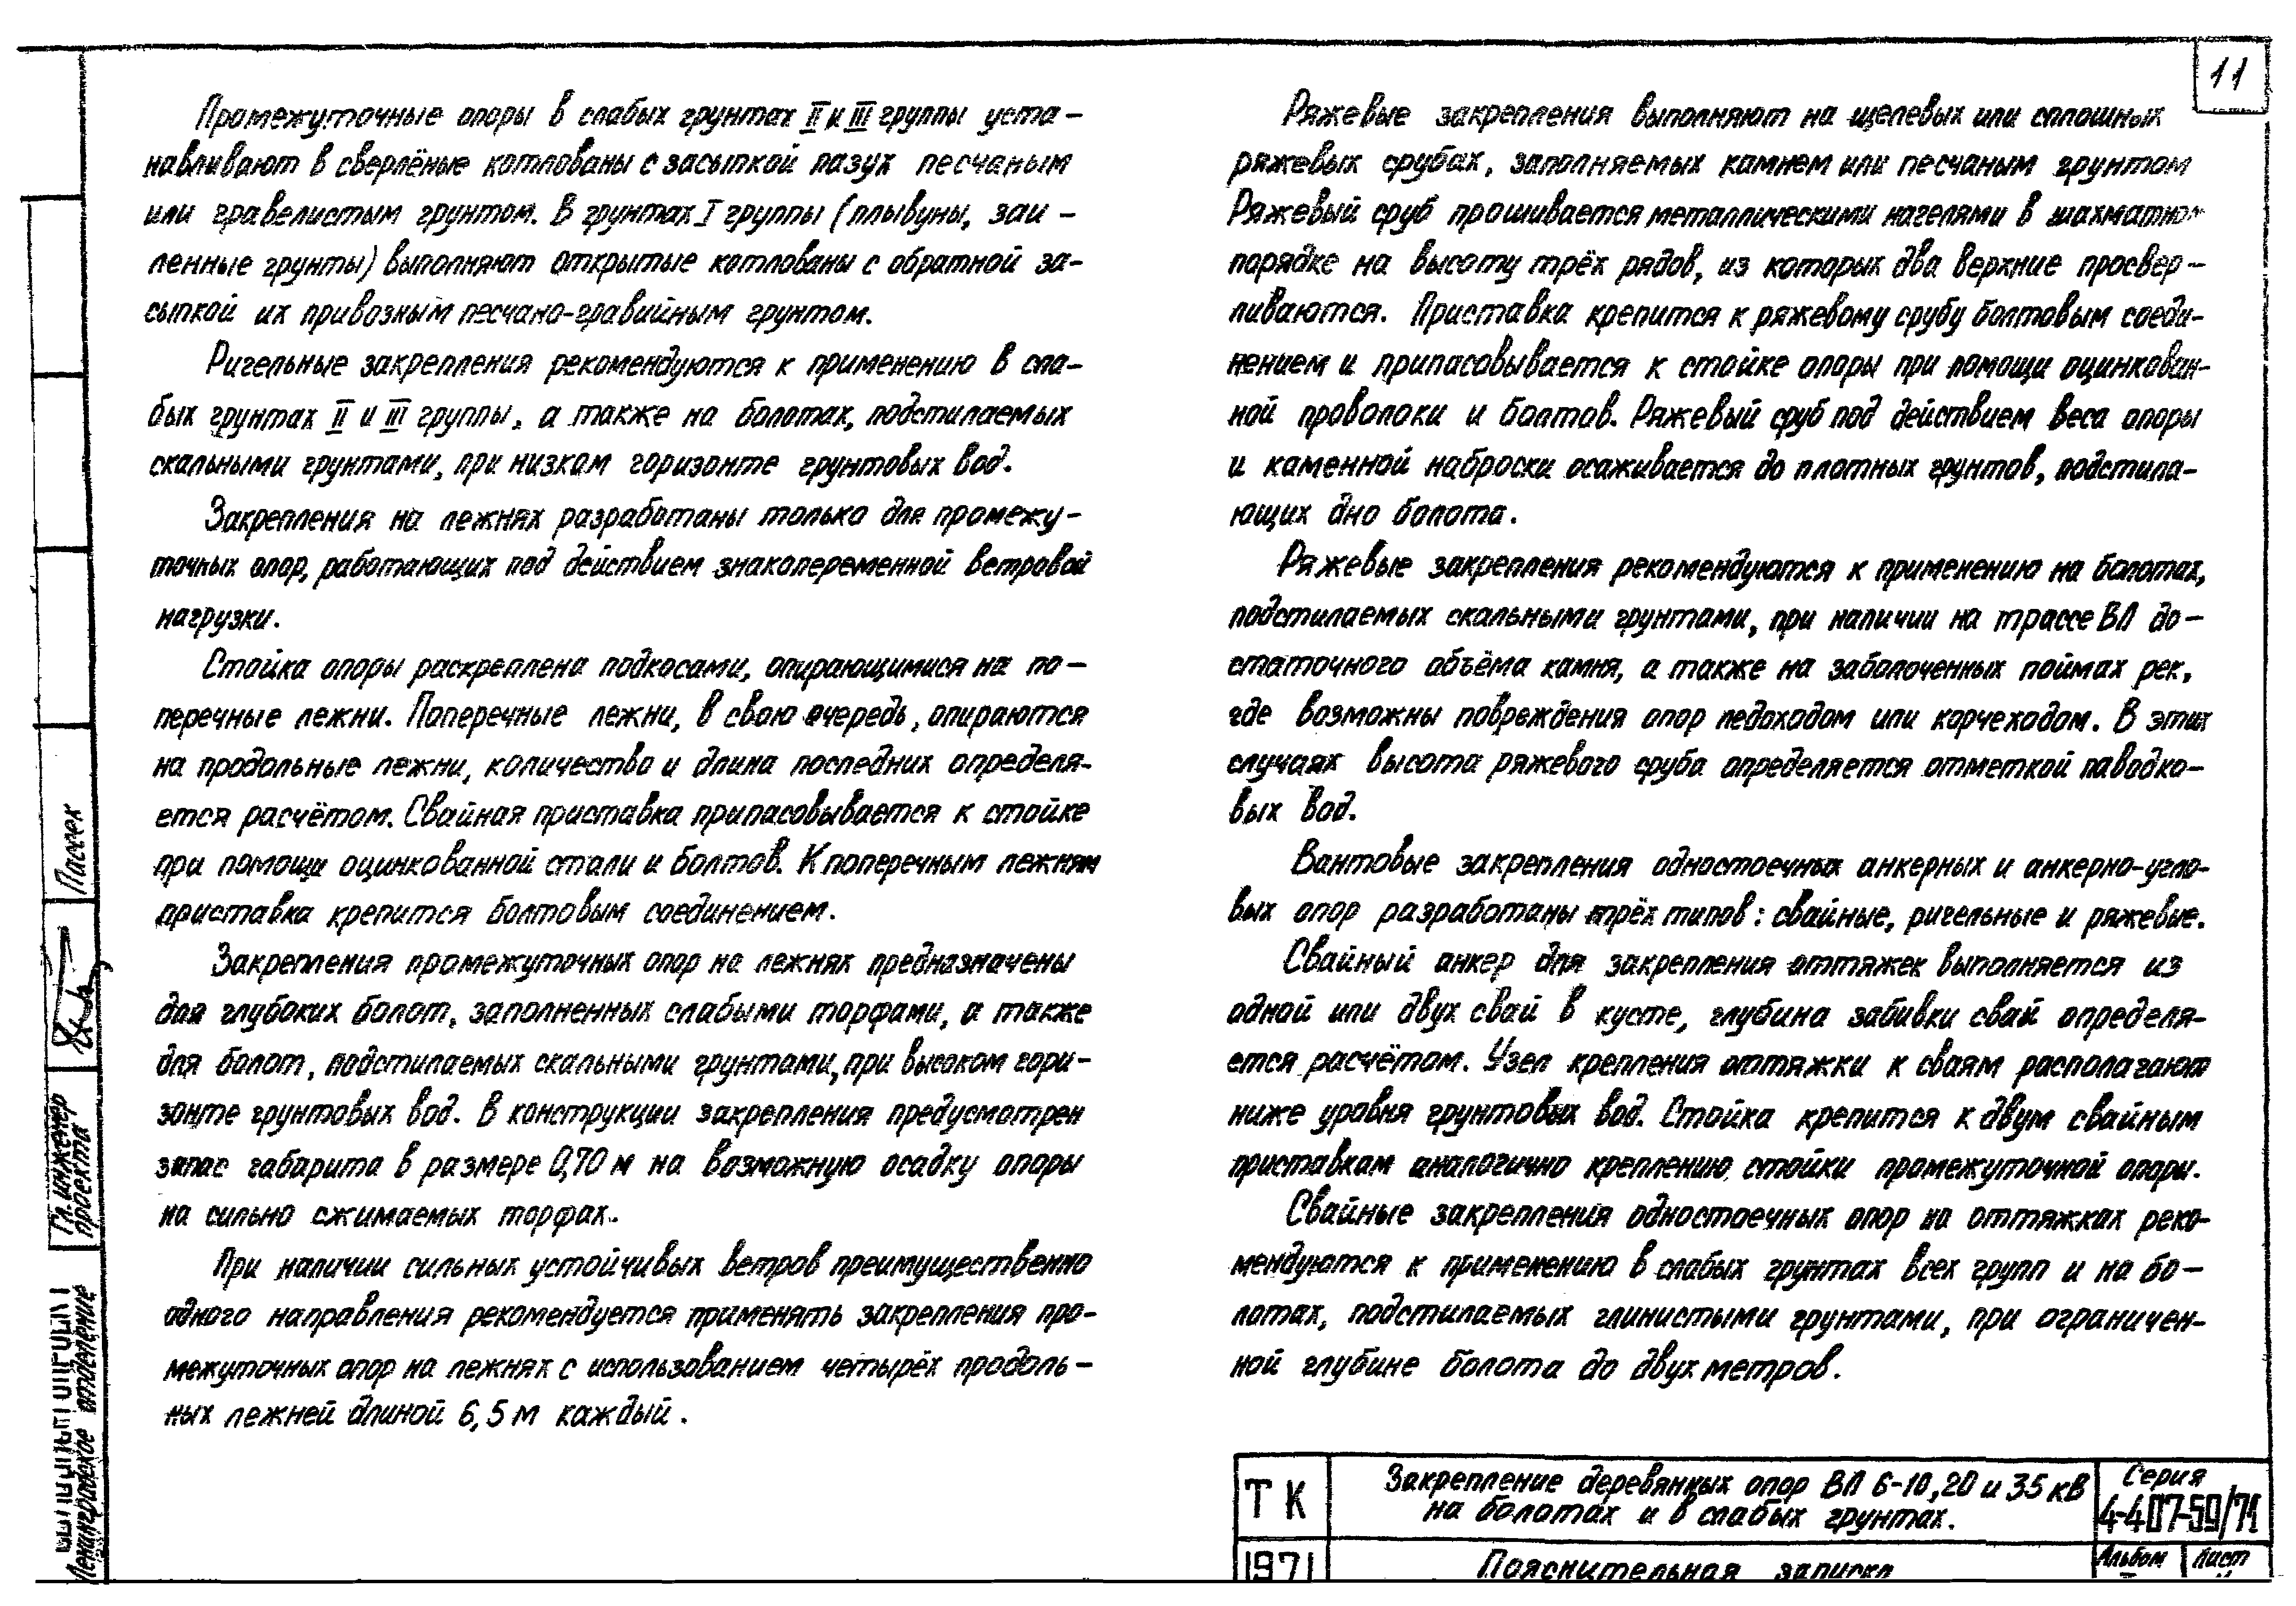 11
Промежуточные опоры в слабых грунтах II и III группы уста-
навливают в сверлёные котлованы с засыпкой пазух песчаным
или гравелистым грунтом. В грунтах I группы (плывуны, заи-
ленные грунты) выполняют открытые котлованы с обратной за-
сыпкой их привозным песчано-гравийным грунтом.
Ригельные закрепления рекомендуются к применению в сла-
бых грунтах II и III группы, а также на болотах, подстилаемых
скальными грунтами, при низком горизонте грунтовых вод.
Закрепления на лежнях разработаны только для промежу-
точных опор, работающих под действием знакопеременной ветровой
нагрузки.
Стойка опоры раскреплена подкосами, опирающимися на по-
перечные лежни. Поперечные лежни, в свою очередь, опираются
на продольные лежни, количество и длина последних определя-
ется расчётом. Свайная приставка припасовывается к стойке
при помощи оцинкованной стали и болтов. К поперечным лежням
приставка крепится болтовым соединением.
Закрепления промежуточных опор на лежнях предназначены
для глубоких болот, заполненных слабыми торфами, а также
для болот, подстилаемых скальными грунтами, при высоком гори-
зонте грунтовых вод. В конструкции закрепления предусмотрен
запас габарита в размере 0,70 м на возможную осадку опоры
на сильно сжимаемых торфах.
При наличии сильных устойчивых ветров преимущественно
одного направления рекомендуется применять закрепления про-
межуточных опор на лежнях с использованием четырёх продоль-
ных лежней длиной 6,5 м каждый.
Ряжевые закрепления выполняют на щелевых или сплошных
ряжевых срубах, заполняемых камнем или песчаным грунтом
Ряжевый сруб прошивается металлическими нагелями в шахматном
порядке на высоту трёх рядов, из которых два верхние просвер-
ливаются. Приставка крепится к ряжевому срубу болтовым соеди-
нением и припасовывается к стойке опоры при помощи оцинкован-
ной проволоки и болтов. Ряжевый сруб под действием веса опоры
и каменной наброски осаживается до плотных грунтов, подстила-
ющих дно болота.
Ряжевые закрепления рекомендуются к применению на болотах,
подстилаемых скальными грунтами, при наличии на трассе ВЛ до-
статочного объёма камня, а также на заболоченных поймах рек,
где возможны повреждения опор ледоходом или корчеходом. В этих
случаях высота ряжевого сруба определяется отметкой паводко-
вых вод.
Вантовые закрепления одностоечных анкерных и анкерно-угло-
вых опор разработаны трёх типов: свайные, ригельные и ряжевые.
Свайный анкер для закрепления оттяжек выполняется из
одной или двух свай в кусте, глубина забивки свай определя-
ется расчётом. Узел крепления оттяжки к сваям располагают
ниже уровня грунтовых вод. Стойка крепится к двум свайным
приставкам аналогично креплению стойки промежуточной опоры.
Свайные закрепления одностоечных опор на оттяжках реко-
мендуются к применению в слабых грунтах всех групп и на бо-
лотах, подстилаемых глинистыми грунтами, при ограничен-
ной глубине болота до двух метров.
Пассек
Гл. инженер
проекта
Ленинградское отделение
ТК
Закрепление деревянных опор ВЛ 6-10, 20 и 35 кВ
на болотах и в слабых грунтах.
Серия
4-407-59/71
1971
Пояснительная записка
Альбом
Лист